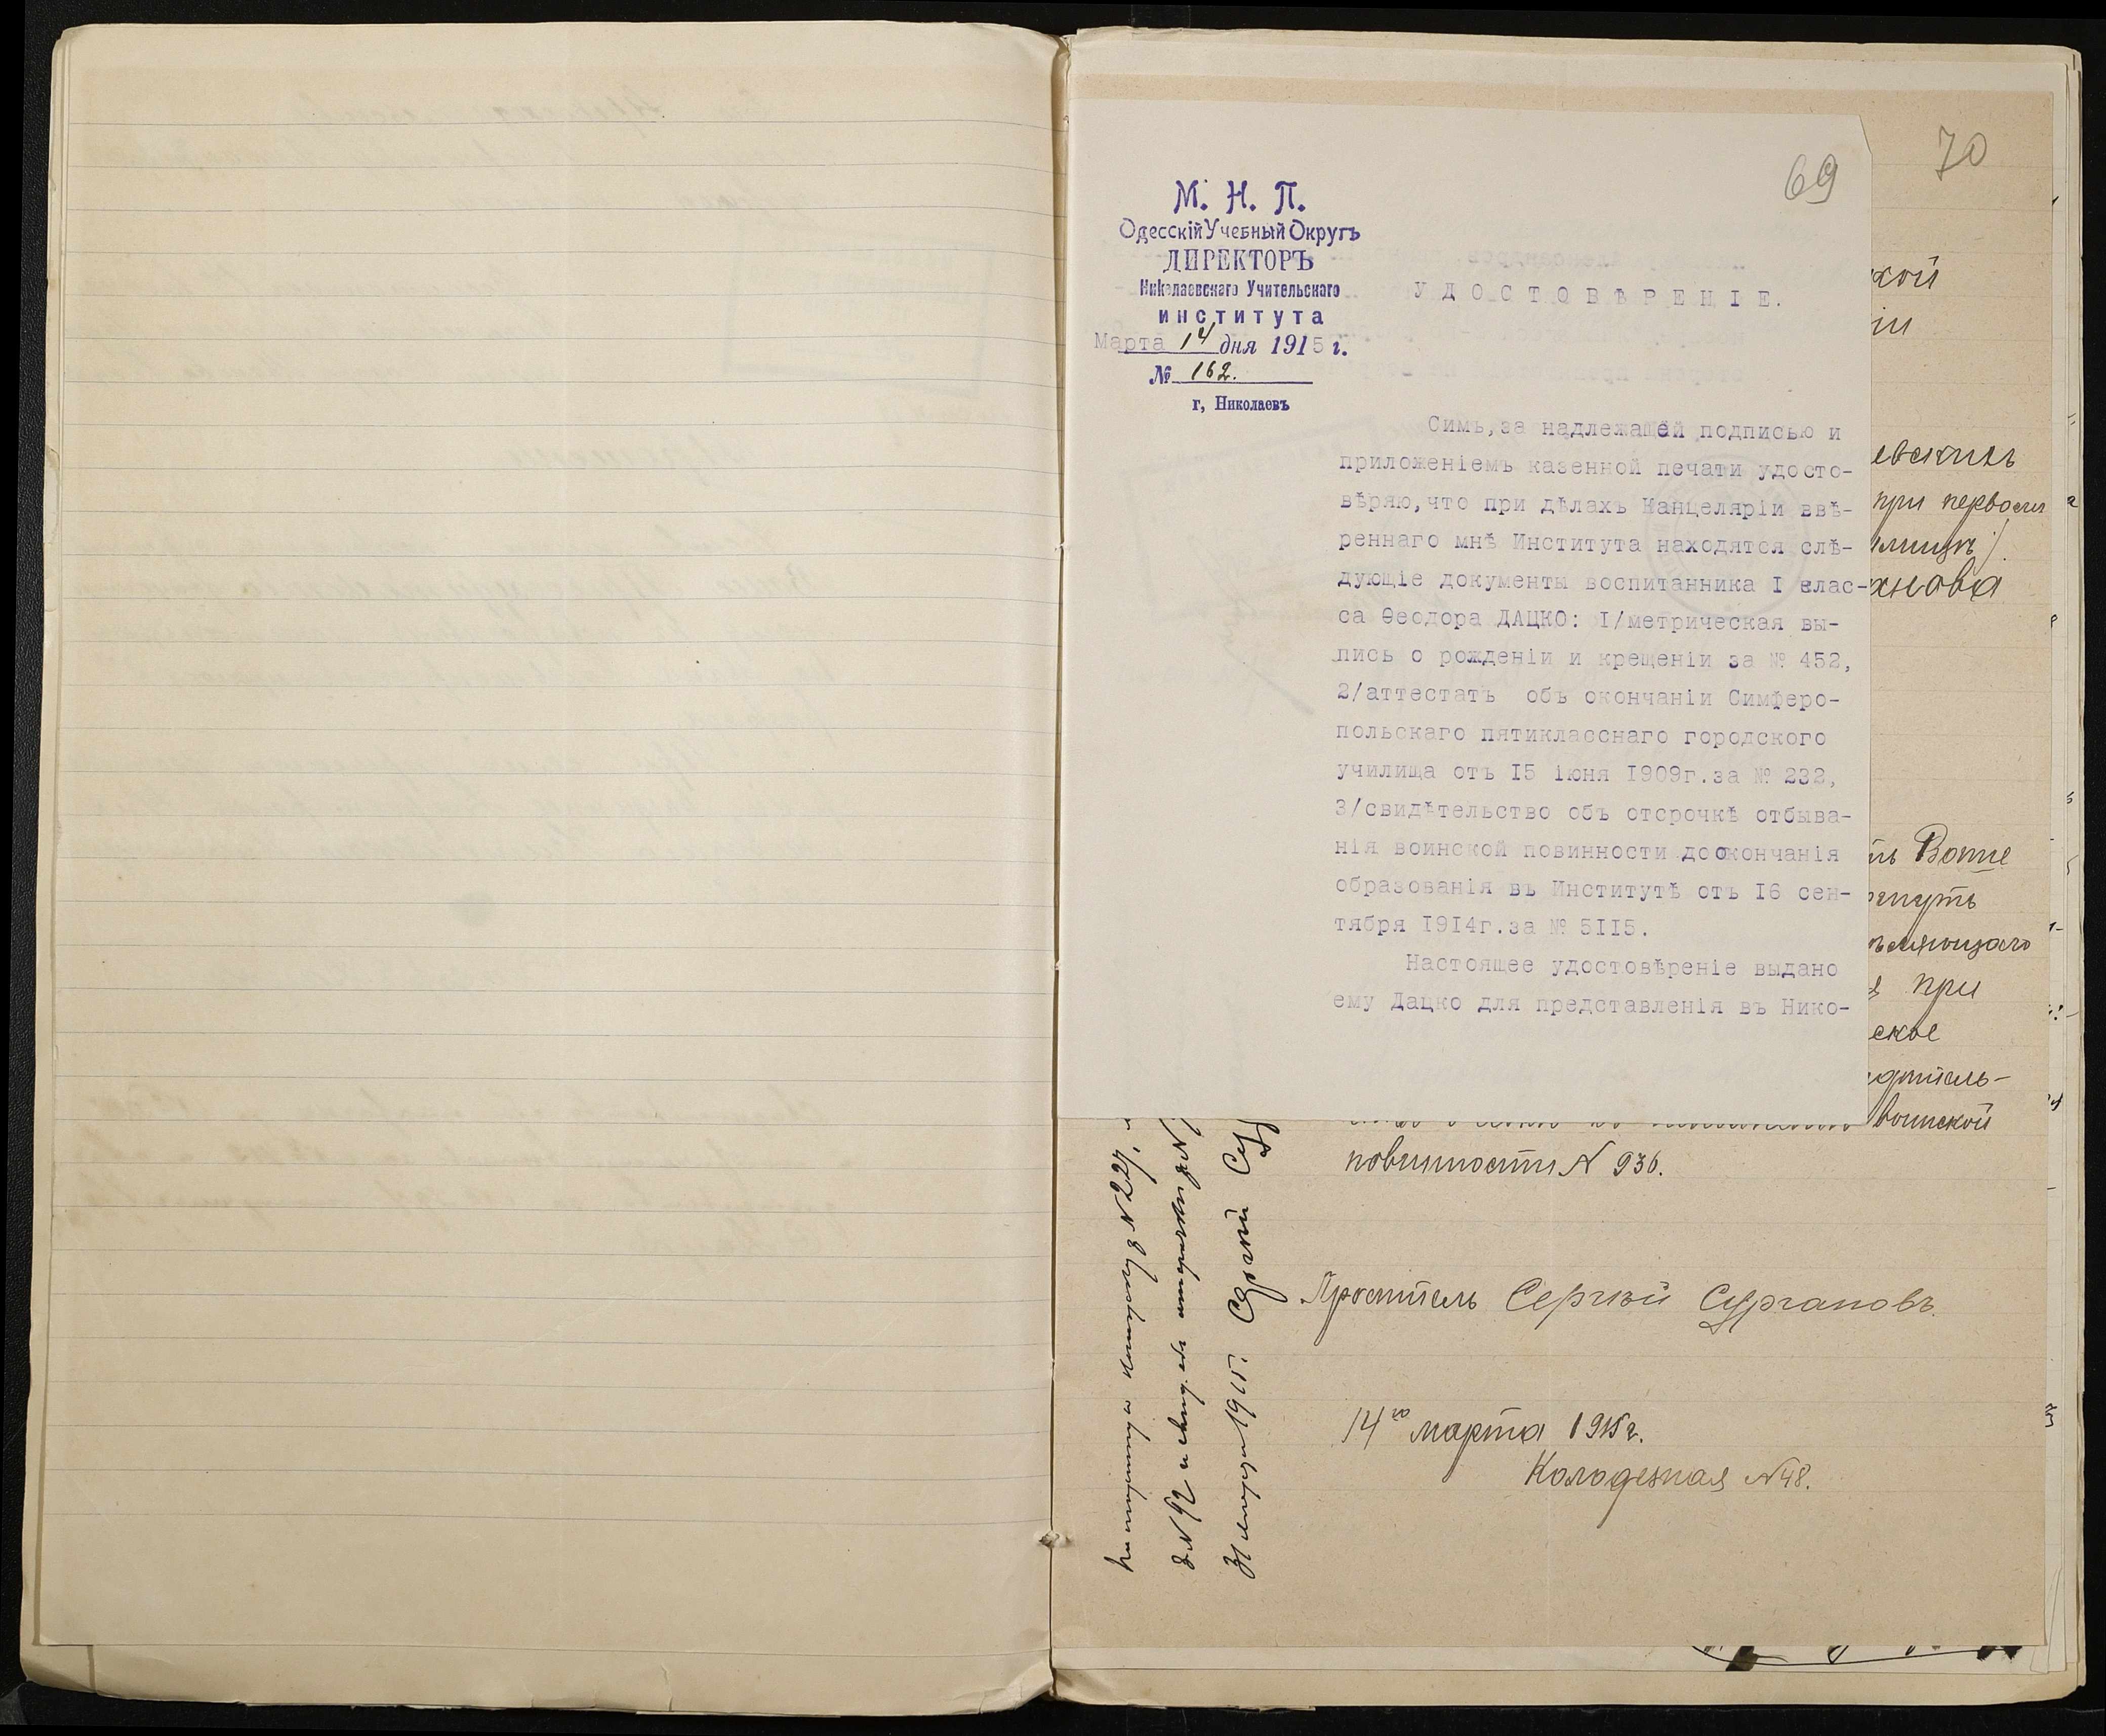 69
70
М. Н. П.
Одесскій Учебный Округъ
ДИРЕКТОРЪ
Николаевскаго Учительскаго
института
Марта 14 дня 1915 г.
№ 162.
г, Николаевъ
УДОСТОВѢРЕНІЕ.
Симъ,за надлежащей подписью и
приложеніемъ казенной печати удосто-
вѣряю,что при дѣлахъ Канцеляріи ввѣ-
реннаго мнѣ Института находятся слѣ-
дующіе документы воспитанника I клас-
са Ѳеодора ДАЦКО: I/метрическая вы-
пись о рожденіи и крещеніи за № 452,
2/аттестатъ объ окончаніи Симферо-
польскаго пятикласснаго городского
училища отъ I5 іюня I909г.за № 232,
3/свидѣтельство объ отсрочкѣ отбыва-
нія воинской повинности до окончанія
образованія въ Институтѣ отъ I6 сен-
тября I9I4г.за № 5II5.
Настоящее удостовѣреніе выдано
ему Дацко для представленія въ Нико-
кой
іи
евскихъ
при первомъ
ханова
Ваше
при
ское
воинской
повинности N 936.
Проситель Сергѣй Сургановъ.
14го марта 1915 г.
Колодезная N 48.
N 227,
1915 г. Сергѣй